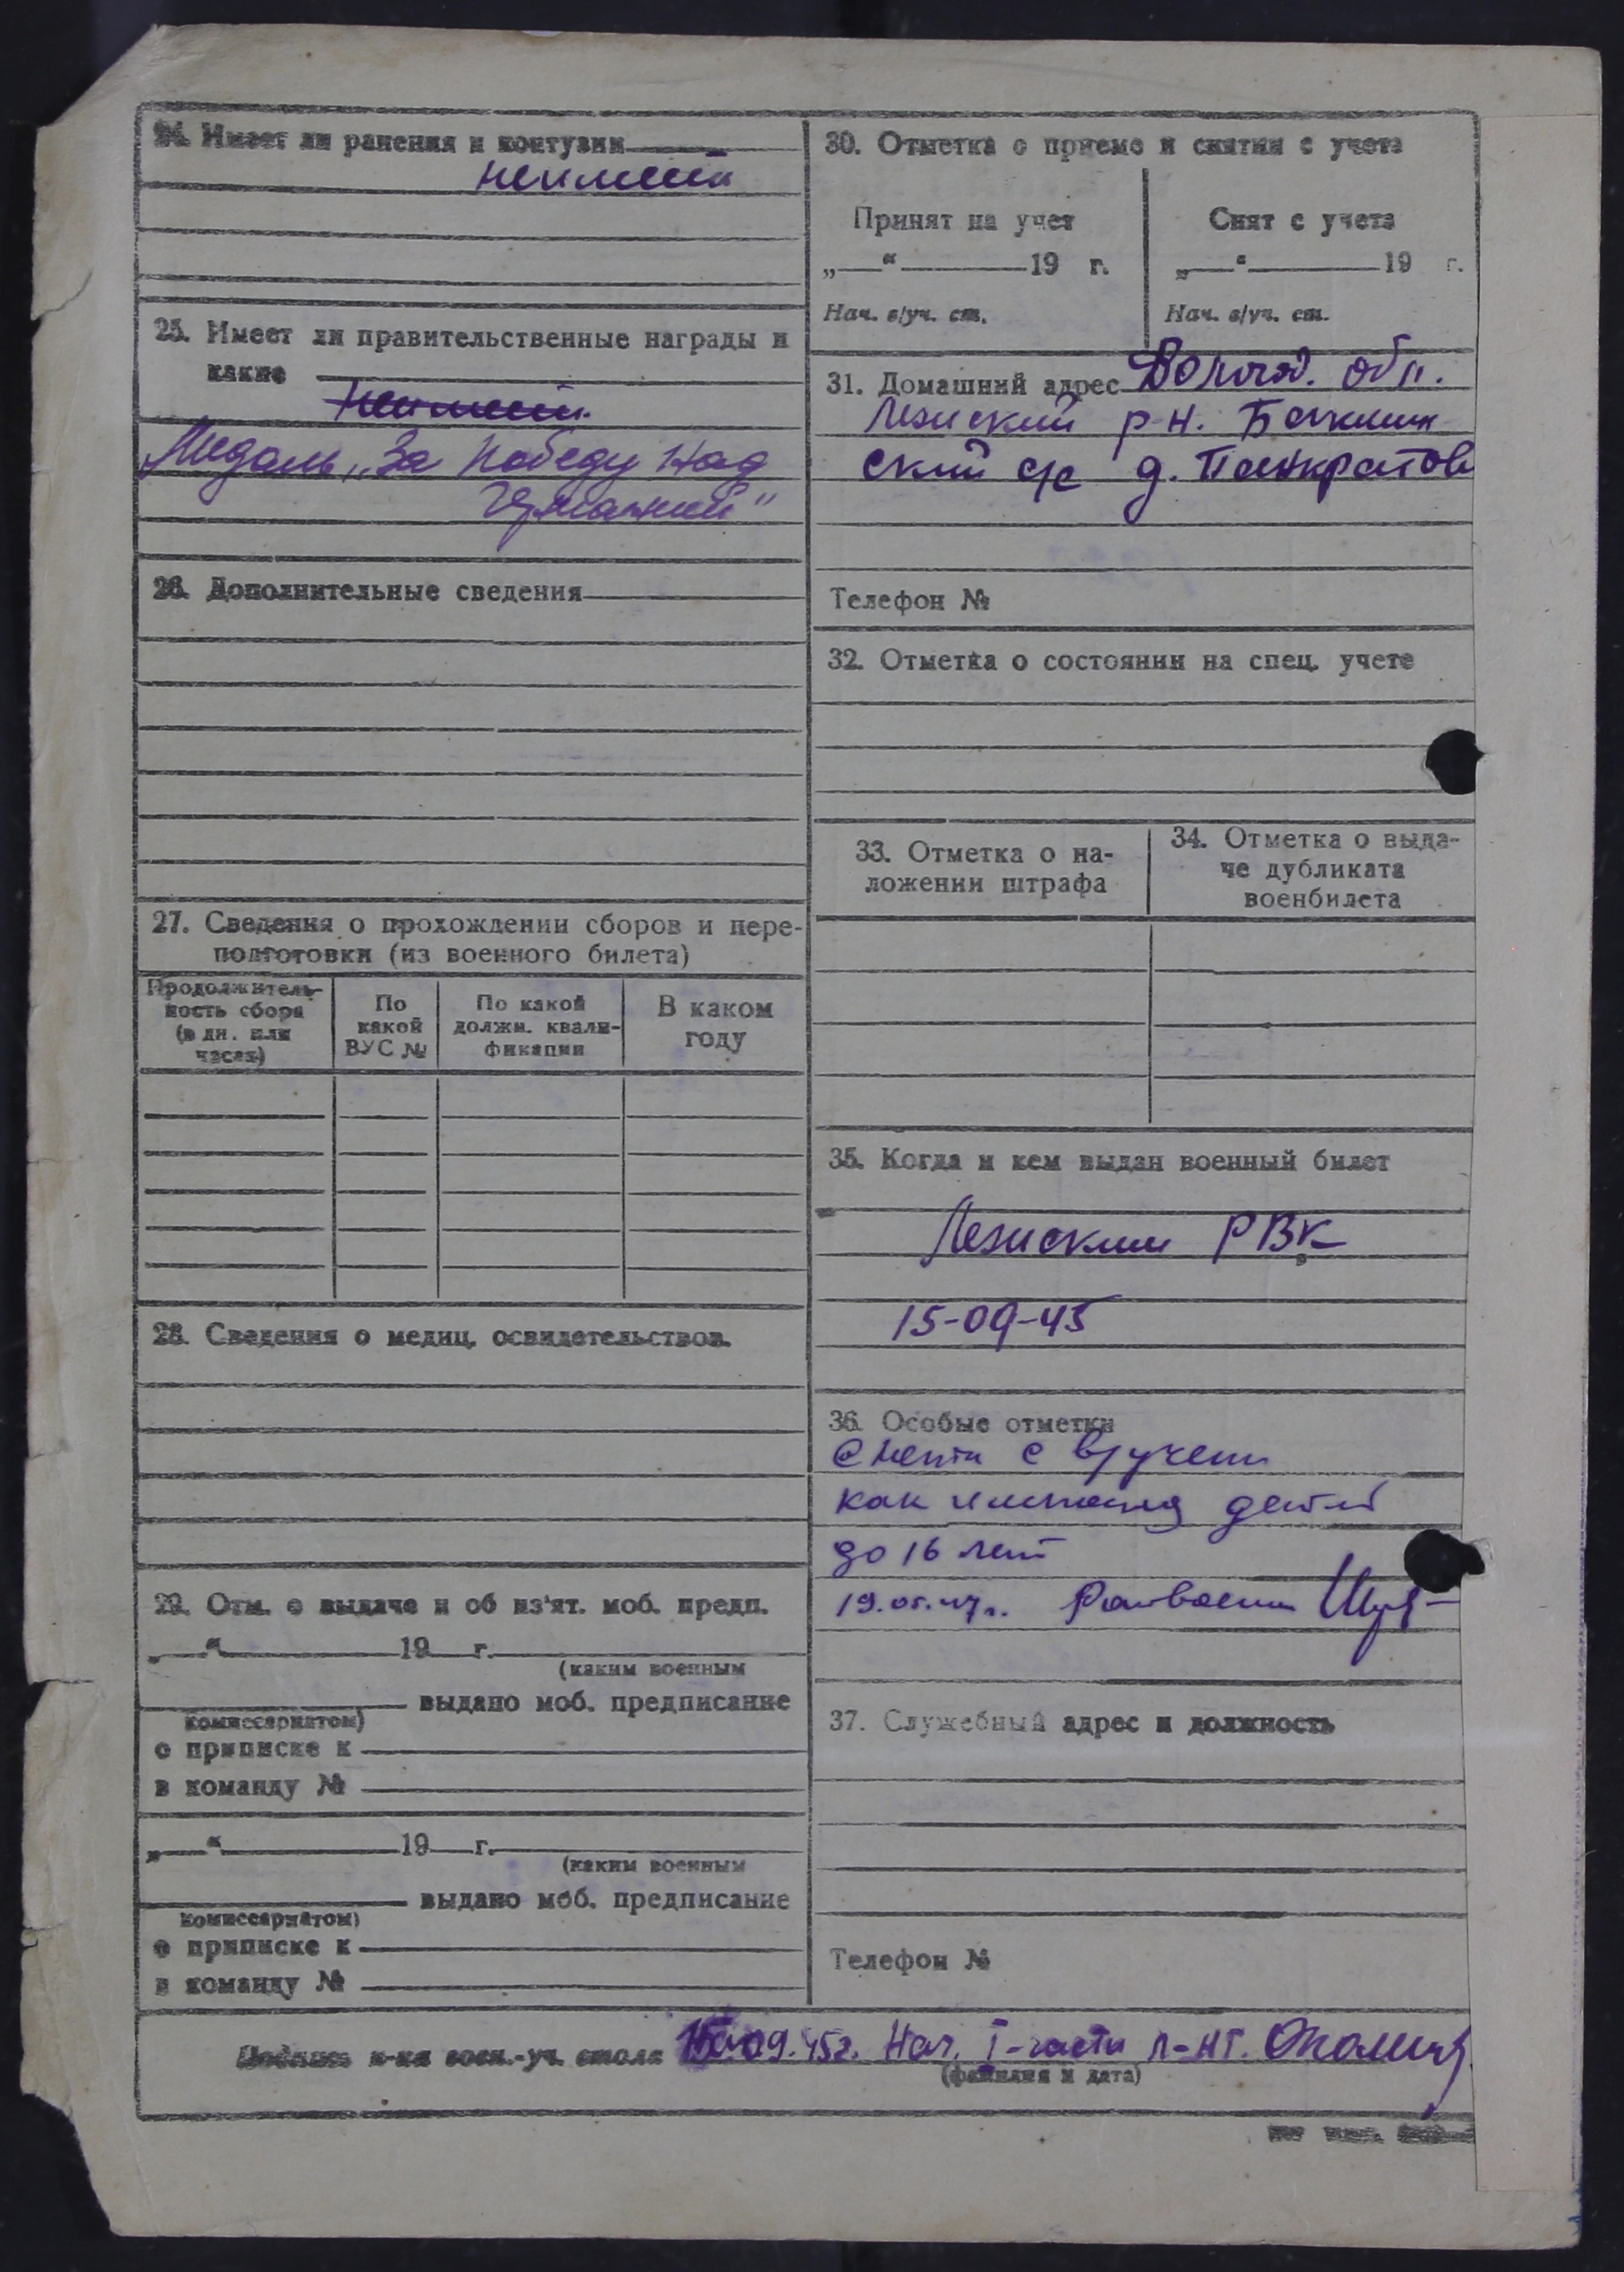 24. Имеет ли ранения и контузии
неимеет
25. Имеет ли правительственные награды и
какие
неимеет.
Медаль „За Победу над
Германией"
26. Дополнительные сведения
27. Сведения о прохождении сборов и пере-
подготовки (из военного билета)
Продолжитель-
ность сбора
(в дн. или
часах)
По
какой
ВУС №
По какой
должн. квали-
фикации
В каком
году
28. Сведения о медиц. освидетельствов.
29. Отм. о выдаче и об из'ят. моб. предп.
„ “ 19 г.
(каким военным
выдано моб. предписание
комиссариатом)
о приписке к
в команду №
„ “ 19 г.
(каким военным
выдано моб. предписание
комиссариатом)
о приписке к
в команду №
30. Отметка о приеме и снятии с учета
Принят на учет
„ “ 19 г.
Нач. в/уч. ст.
Снят с учета
„ “ 19 г.
Нач. в/уч. ст.
31. Домашний адрес Волгод. обл.
Лежский р-н.
ский с/с д. Панкратов
Телефон №
32. Отметка о состоянии на спец. учете
33. Отметка о на-
ложении штрафа
34. Отметка о выда-
че дубликата
военбилета
35. Когда и кем выдан военный билет
Лежским РВК
15-09-45
36. Особые отметки
Снята с в/учета
как имеющая детей
до 16 лет
19.05.47г.
37. Служебный адрес и должность
Телефон №
Подпись н-ка воен.-уч. стола 15.09.45г. Нач. I-части л-нт.
(фамилия и дата)